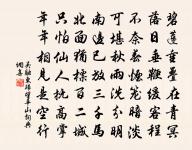 碧蓮重疊在青冥
落日垂鞭緩客程
不奈春煙籠暗淡
可堪秋雨洗分明
南邊已放三千馬
北面猶標百二城
只怕仙人撫高掌
年年相見是空行
吳融東歸望華山詞典
網書